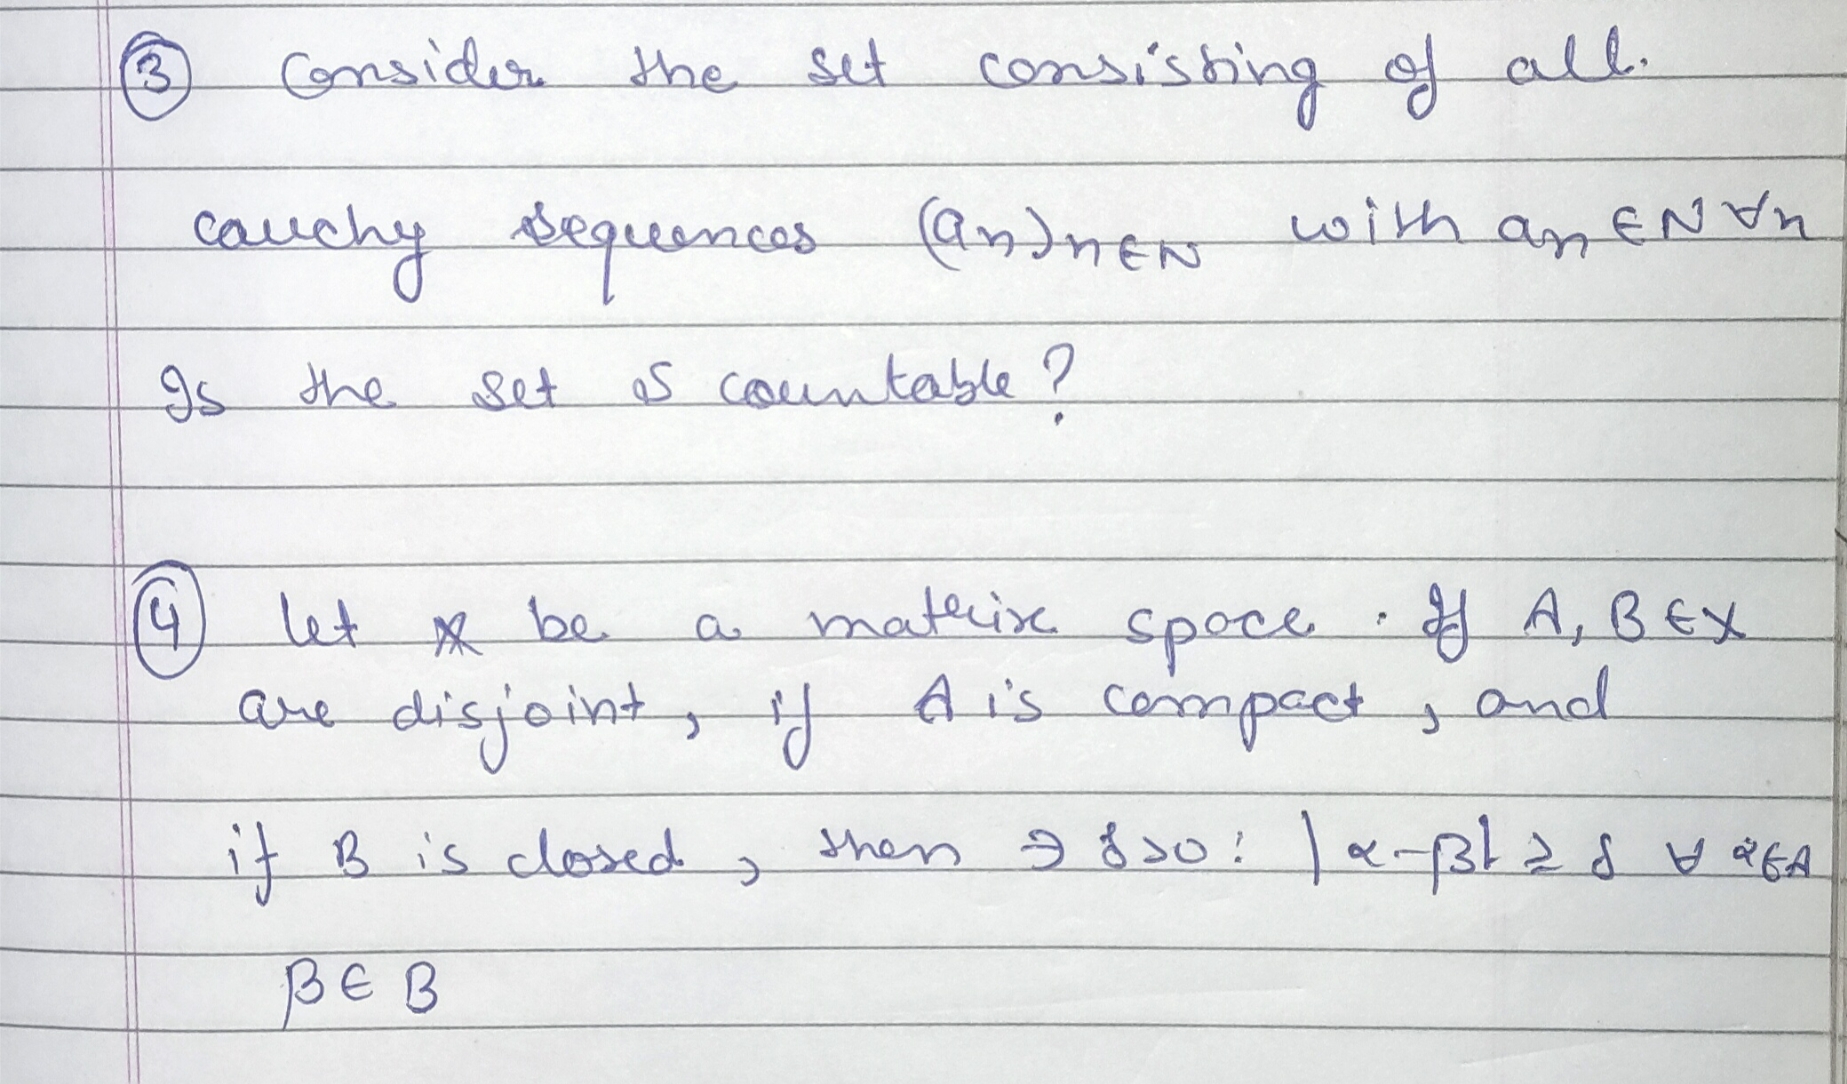 ③ Consider the set consisting of all.
cauchy sequences (an)n∈N with an ∈N ∀n
Is the set S countable?
④ let X be a matrix space. If A, B ∈ X
are disjoint, if A is compact, and
if B is closed, then ∃ δ>0: |α-β| ≥ δ ∀ α∈A
β ∈ B